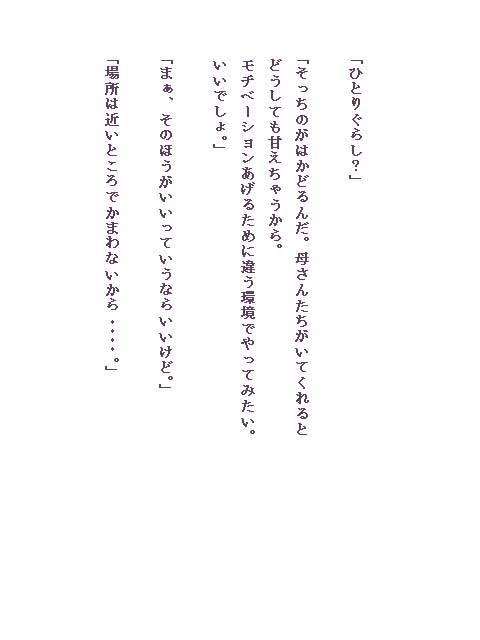 「ひとりぐらし？」
「そっちのがはかどるんだ。母さんたちがいてくれると
どうしても甘えちゃうから。
モチベーションあげるために違う環境でやってみたい。
いいでしょ。」
「まぁ、そのほうがいいっていうならいいけど。」
「場所は近いところでかまわないから・・・・。」